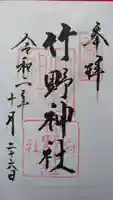 奉拝
竹野神社
令和一年十月二十六日